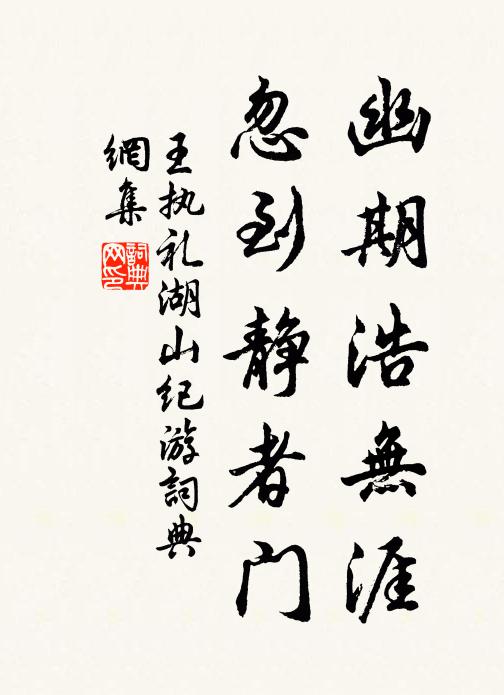 幽期浩無涯
忽到静者门
王执礼湖山纪游詞典
網集
詞典
网印